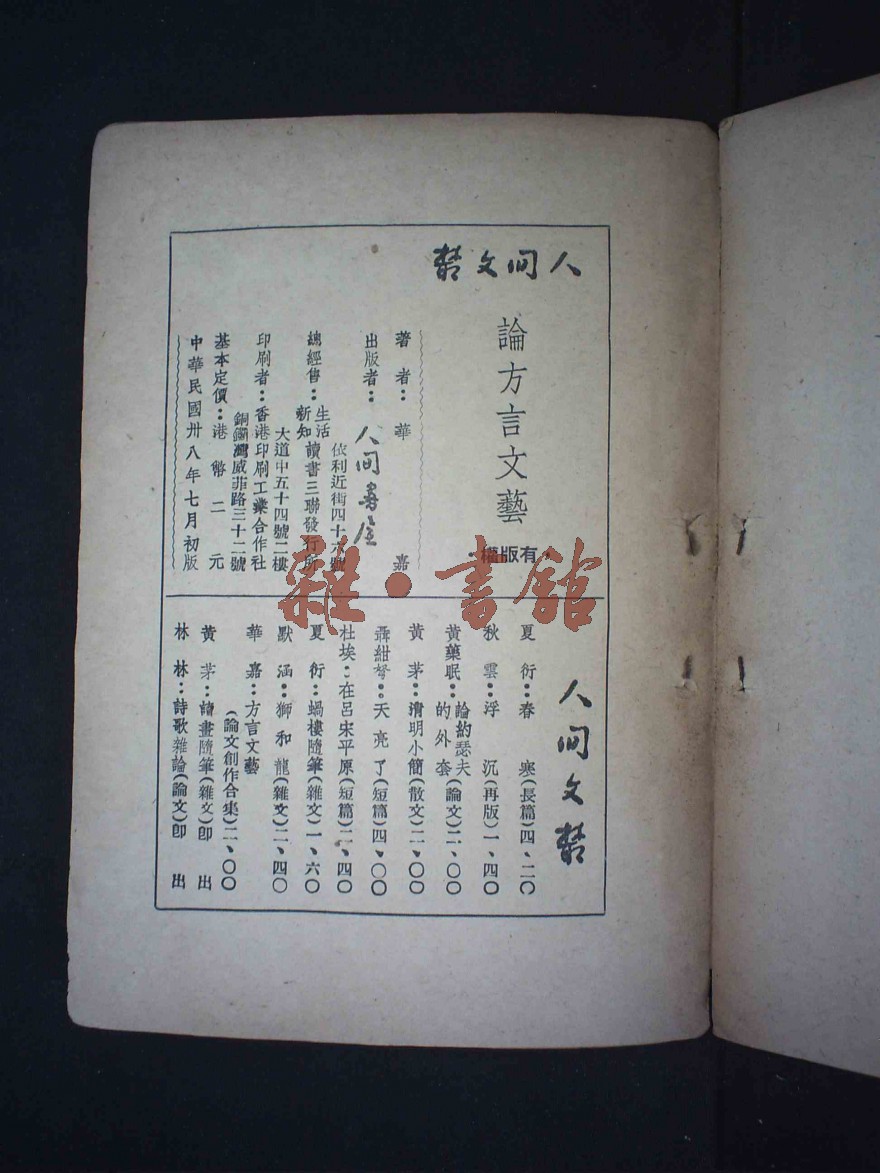 人间文丛
論方言文藝
·有版權·
著者：華嘉
出版者：人间書屋
依利近街四十六號
總經售：生活新知讀書三聯發行所
大道中五十四號二樓
印刷者：香港印刷工業合作社
銅鑼灣威菲路三十二號
基本定價：港幣二元
中華民國卅八年七月初版
人间文丛
夏衍：春寒（長篇）四、二〇
秋雲：浮沉（再版）一、四〇
黃藥眠：論約瑟夫的外套（論文）二、〇〇
黃茅：清明小簡（散文）二、〇〇
聶紺弩：天亮了（短篇）四、〇〇
杜埃：在呂宋平原（短篇）二、四〇
夏衍：蝸樓隨筆（雜文）一、六〇
默涵：獅和龍（雜文）二、四〇
華嘉：方言文藝
（論文創作合集）二、〇〇
黃茅：讀畫隨筆（雜文）即出
林林：詩歌雜論（論文）即出
雜·書館